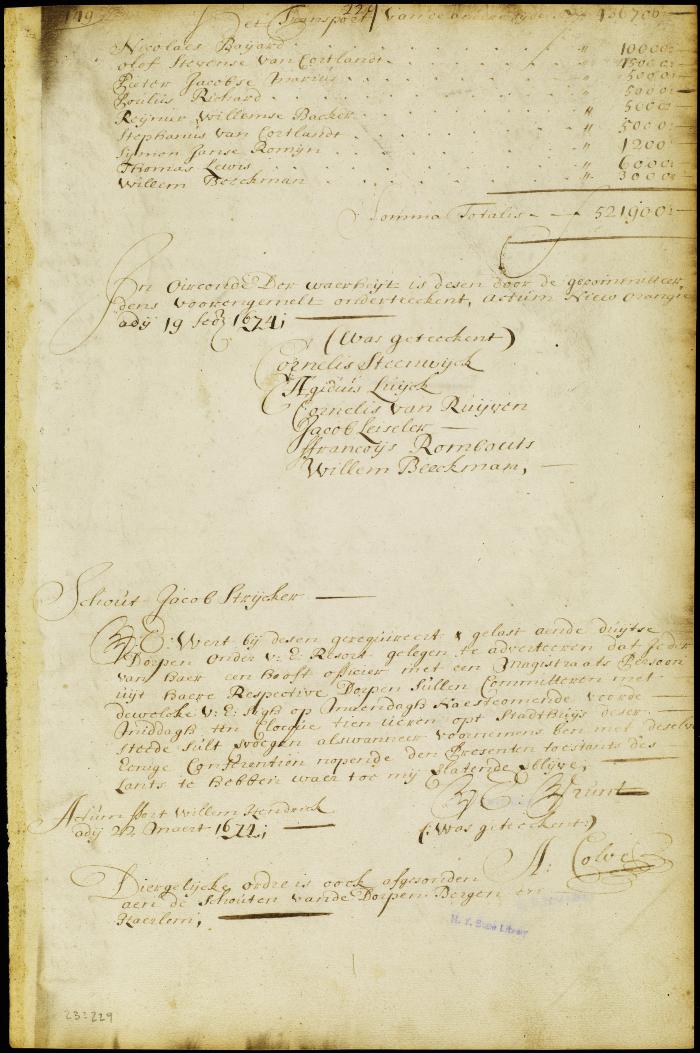 149 229
Het Transport van de andere zijde 456700
Nicolaes Bayard 10000
Olof Stevense van Cortlandt 45000
Pieter Jacobse Marius 5000
Poulus Richard 5000
Reynier Willemse Backer 5000
Stephanus van Cortlandt 5000
Symon Janse Romyn 1200
Thomas Lewis 6000
Willem Beeckman 3000
Somma Totalis 521900
In Oirconde Der waerheijt is desen door de gecommitteer
dens voorengemelt onderteeckent, Actum Nieu Orange
adij 19
1674;
(Was geteeckent)
Cornelis Steenwijck
Ægidius Luijck
Cornelis van Ruijven
Jacob Leiseler
ffrancoijs Rombouts
Willem Beeckman,
Schout Jacob Strycker
U E: Wert bij desen gerequireert & gelast aende duijtse
Dorpen Onder v: E: Resort gelegen te adverteeren dat Jeder
van haer een hooft officier met een Magistraets Persoon
uijt haere Respective Dorpen Sullen Committeren met
dewelcke v: E: sigh op Maendagh Naestcomende voorde
Middagh ten Clocque tien ueren opt Stadthuijs deser
stede Sult voegen alswanneer voornemens ben met deselve
Eenige Conferentien nopende den Presenten toestant des
Lants te hebben waer toe mij Statende blijve,
U E: Vrunt
Actum ffort Willem Hendrick
adij 22 Maert 1674;
(Was geteeckent)
A: Colve
Diergelijcke ordre is oock afgesonden
aen de Schouten vande Dorpen Bergen en
Haerlem,
N. Y. State Library
23:229